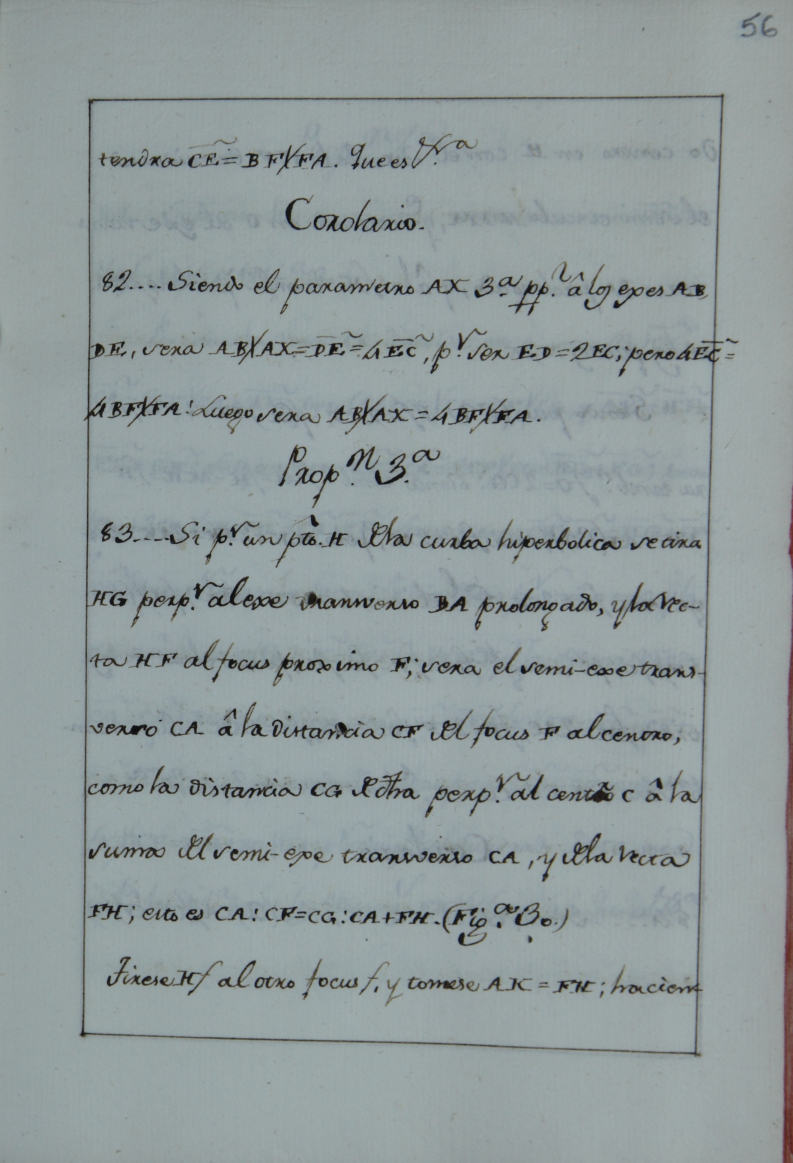 56
tendra C̅E̅̃ = BF X FA. Que es &.ª
Corolario.
82.... Siendo el parametro AX 3.ª pp.l â los exes AB,
DE, sera AB X AX = D̅E̅̃ = 4E̅C̅̃, p.r ser ED = 2EC; pero 4E̅C̅̃ =
4BF X FA: Luego sera AB X AX = 4BF X FA.
Prop.n 3.ª
83.... Si p.r un pto. H dela curba hiperbolica se tira
HG perp.r al exe tranverso BA prolongado, y la rec-
ta HF al focus proximo F; sera el semi-exe trans-
verso CA â la distancia CF del focus F al centro,
como la distancia CG de dha perp.r al centro C â la
suma del semi-exe tranverso CA, y dela recta
FH; esto es CA : CF = CG : CA + FH. (Fig.ª 30.)
Tirese Hf al otro focus f, y tomese AK = FH; hacien-